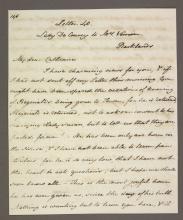 146
Letter 40
Lady De Courcy to Mrs Vernon
Parklands
My dear Catherine
I have charming news for you, & if
I had not sent off my Letter this morning, You
might have been spared the vexation of knowing
of Reginald's being gone to Town, for he is returned,
Reginald is returned, not to ask our consent to his
marrying Lady Susan, but to tell us that they are
parted forever! He has been only an hour in
the House, & I have not been able to learn par-
ticulars, for he is so very low, that I have not
the heart to ask questions; but I hope we shall soon
know all. This is the most joyful hour
he has ever given us, since the day of his birth.
Nothing is wanting but to have you here, & it